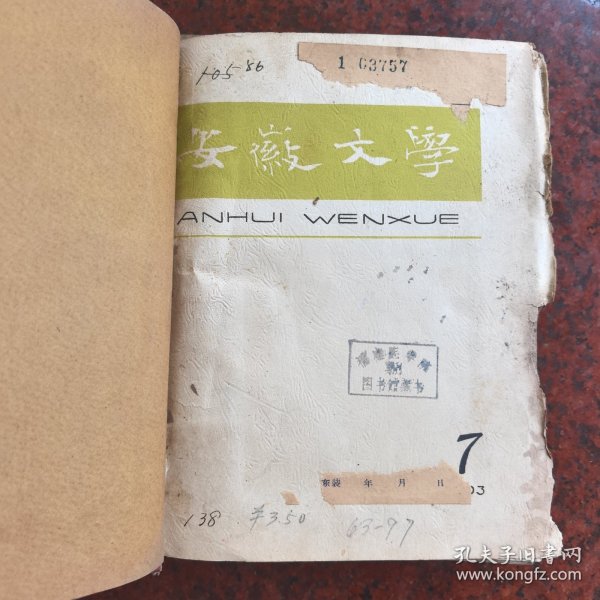 105 86
1 03757
安徽文學
ANHUI WENXUE
图书馆藏书
7
来装 年 月 日
03
138 ￥3.50 63-97
孔夫子旧书网
www.kongfz.com